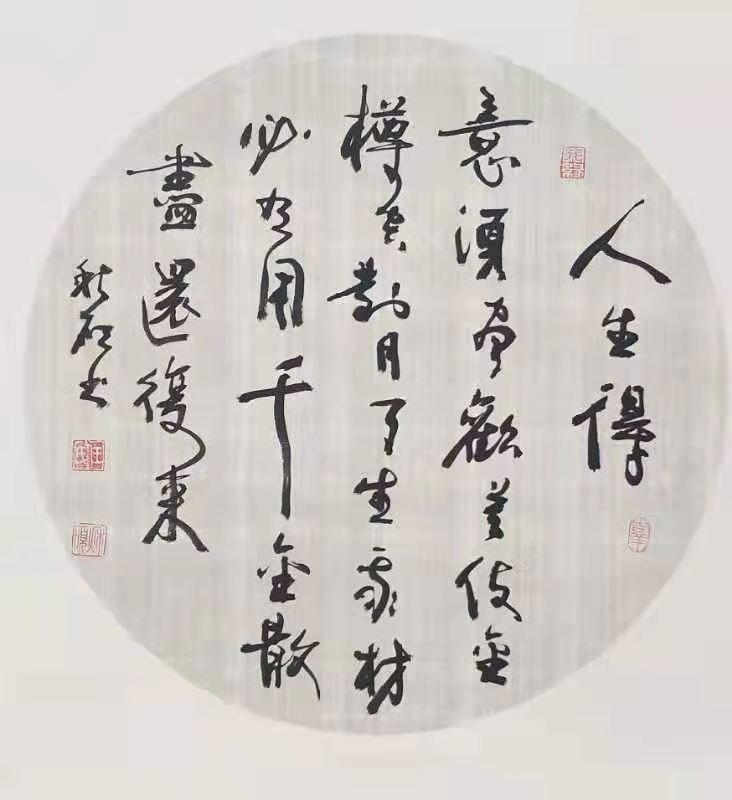 人生得
意須盡歡莫使金
樽空對月天生我材
必有用千金散
盡還復來
秋石书